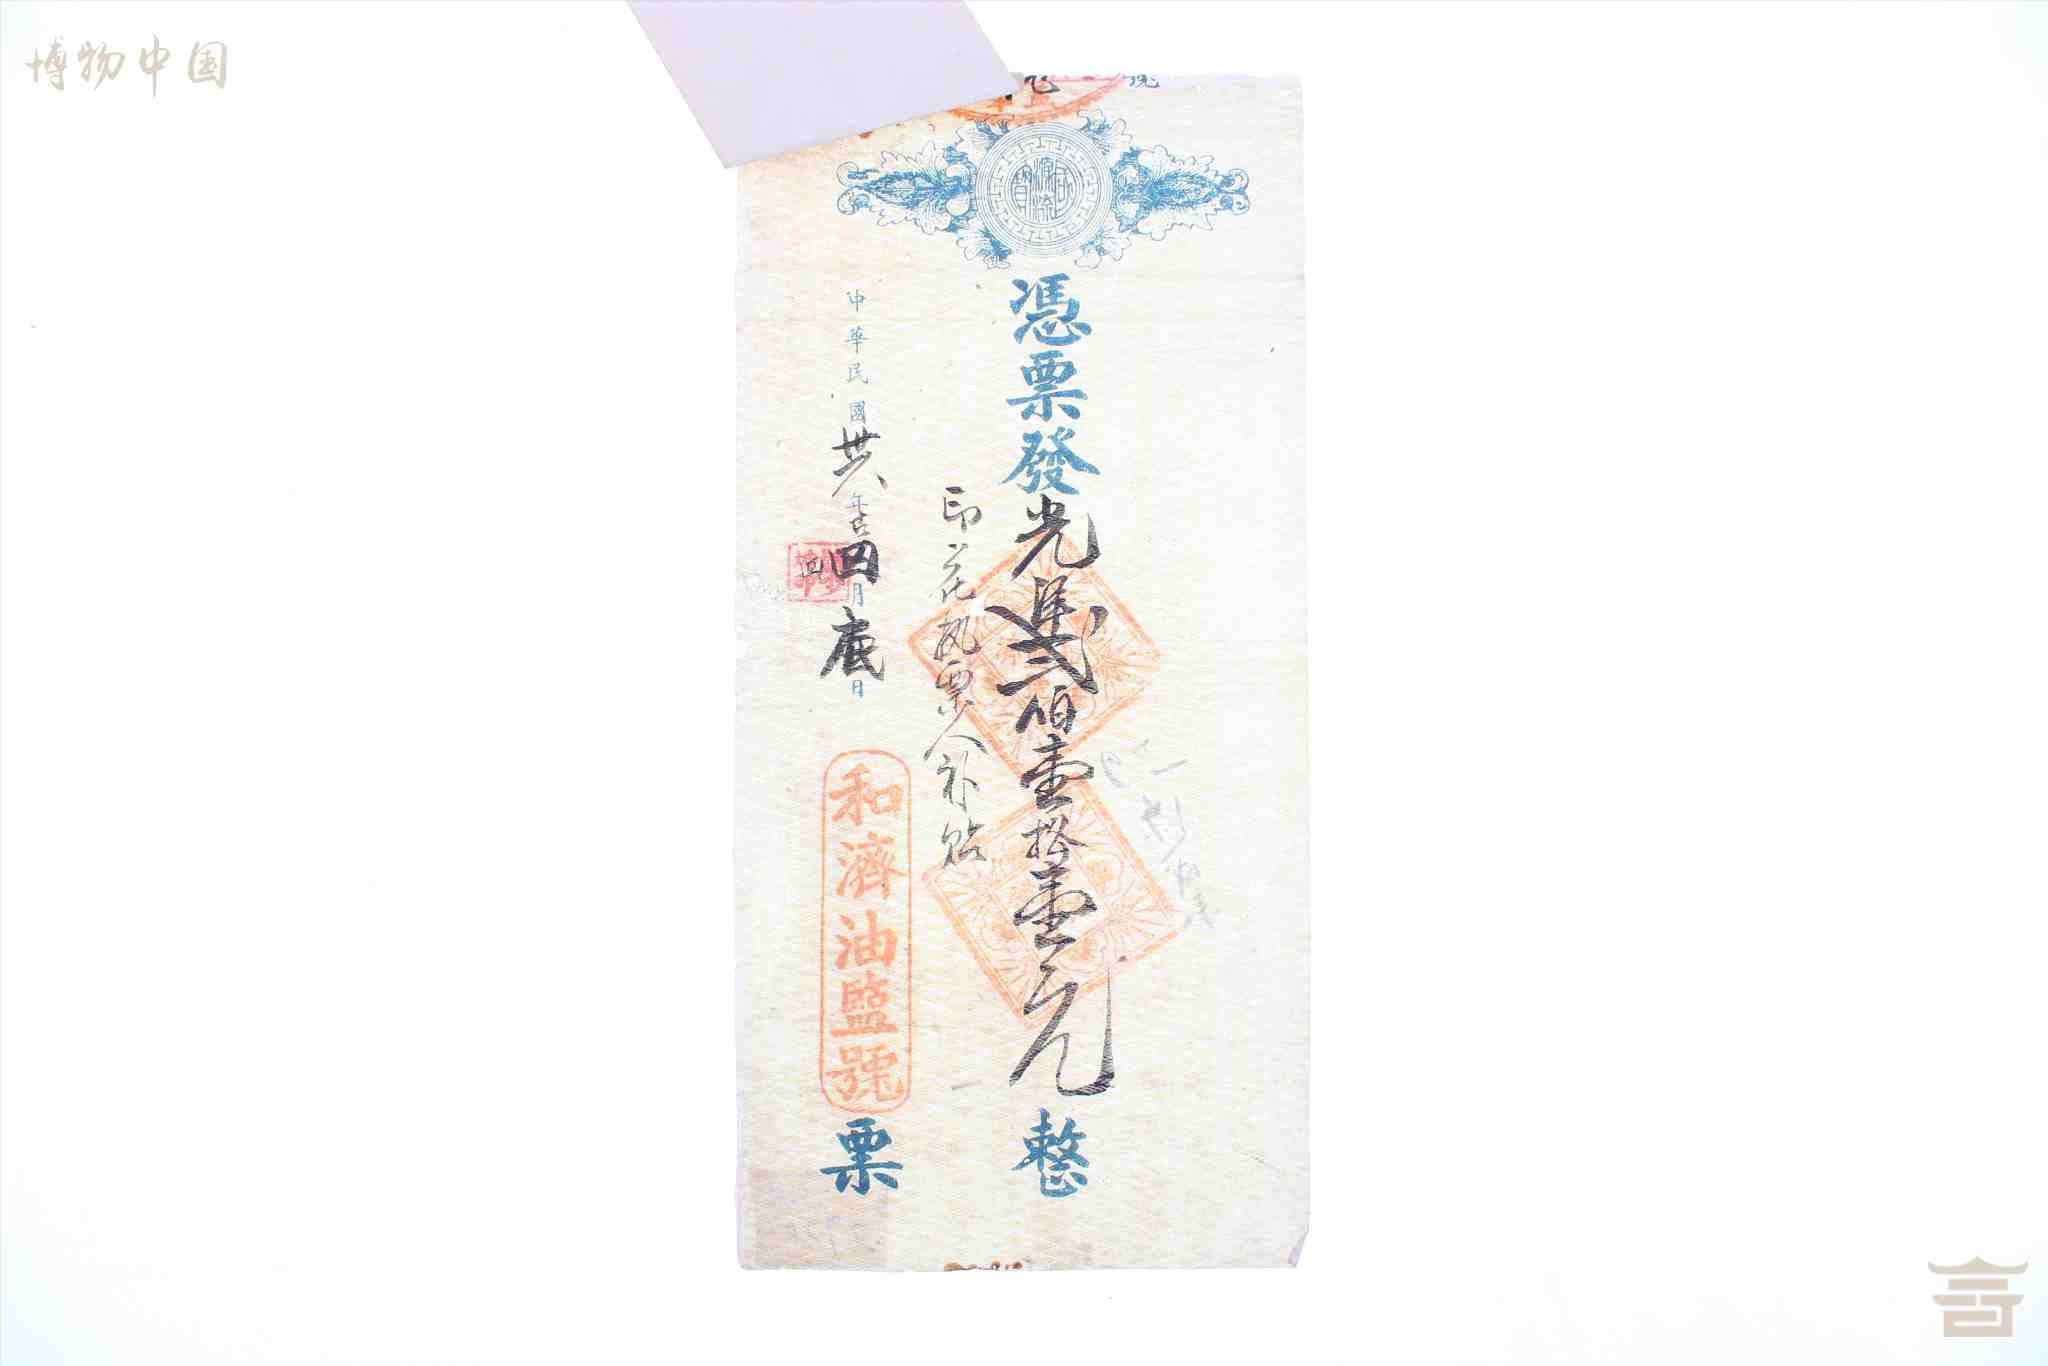 博物中国
號
憑票發光洋貳佰壹拾壹元整
印花执票人补贴
中華民國卅八年古四月底日
和濟油鹽號票